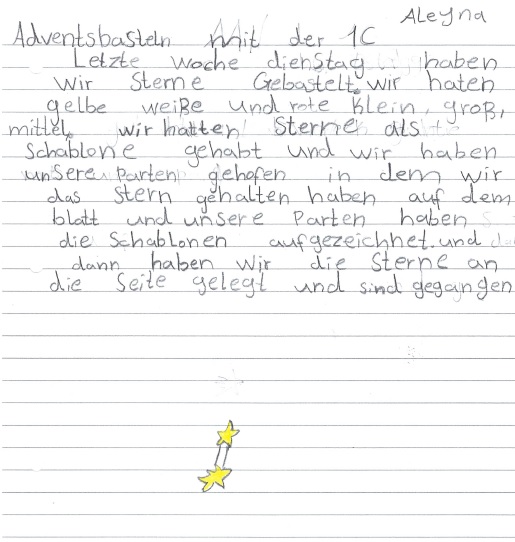 Aleyna
Adventsbasteln mit der 1C
Letzte woche dienstag haben
wir Sterne Gebastelt. wir haten
gelbe weiße und rote klein, groß,
mittel. wir hatten Sterne als
Schablone gehabt und wir haben
unsere Parten gehofen in dem wir
das stern gehalten haben auf dem
blatt und unsere Parten haben
die Schablonen aufgezeichnet. und
dann haben wir die Sterne an
die Seite gelegt und sind gegangen